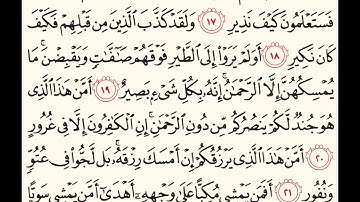 فَسَتَعْلَمُونَ كَيْفَ نَذِيرِ ١٧ وَلَقَدْ كَذَّبَ الَّذِينَ مِن قَبْلِهِمْ فَكَيْفَ
كَانَ نَكِيرِ ١٨ أَوَلَمْ يَرَوْا إِلَى الطَّيْرِ فَوْقَهُمْ صَٰٓفَّٰتٍ وَيَقْبِضْنَ ۚ مَا
يُمْسِكُهُنَّ إِلَّا الرَّحْمَٰنُ ۚ إِنَّهُۥ بِكُلِّ شَىْءٍۭ بَصِيرٌ ١٩ أَمَّنْ هَٰذَا الَّذِى
هُوَ جُندٌ لَّكُمْ يَنصُرُكُم مِّن دُونِ الرَّحْمَٰنِ ۚ إِنِ الْكَٰفِرُونَ إِلَّا فِى غُرُورٍ
٢٠ أَمَّنْ هَٰذَا الَّذِى يَرْزُقُكُمْ إِنْ أَمْسَكَ رِزْقَهُۥ ۚ بَل لَّجُّوا فِى عُتُوٍّ
وَنُفُورٍ ٢١ أَفَمَن يَمْشِى مُكِبًّا عَلَىٰ وَجْهِهِۦٓ أَهْدَىٰٓ أَمَّن يَمْشِى سَوِيًّا